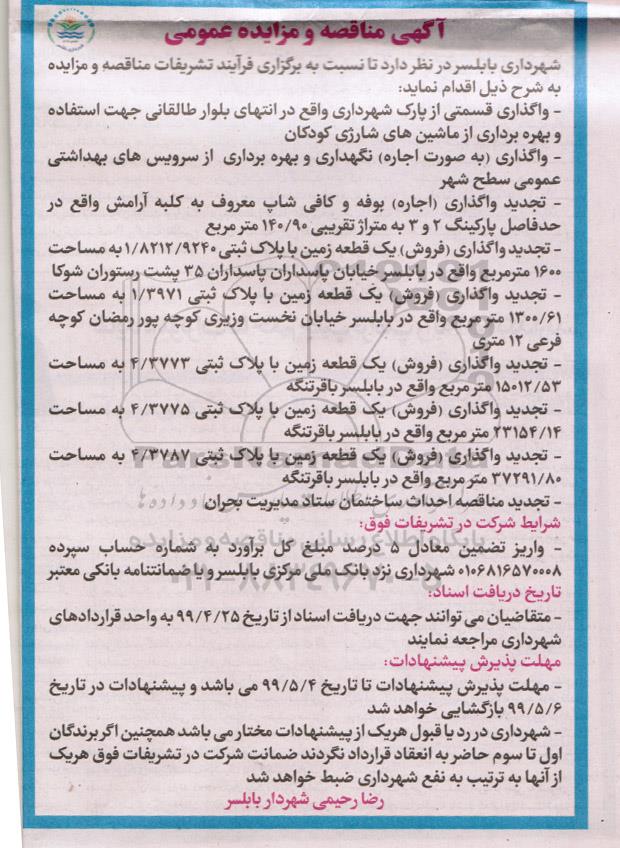 آگهی مناقصه و مزایده عمومی
شهرداری بابلسر در نظر دارد تا نسبت به برگزاری فرآیند تشریفات مناقصه و مزایده
به شرح ذیل اقدام نماید:
- واگذاری قسمتی از پارک شهرداری واقع در انتهای بلوار طالقانی جهت استفاده
و بهره برداری از ماشین های شارژی کودکان
- واگذاری (به صورت اجاره) نگهداری و بهره برداری از سرویس های بهداشتی
عمومی سطح شهر
- تجدید واگذاری (اجاره) بوفه و کافی شاپ معروف به کلبه آرامش واقع در
حدفاصل پارکینگ ۲ و ۳ به متراژ تقریبی ۱۴۰/۹۰ متر مربع
- تجدید واگذاری (فروش) یک قطعه زمین با پلاک ثبتی ۱/۸۲۱۲/۹۲۴۰ به مساحت
۱۶۰۰ مترمربع واقع در بابلسر خیابان پاسداران پاسداران ۳۵ پشت رستوران شوکا
- تجدید واگذاری (فروش) یک قطعه زمین با پلاک ثبتی ۱/۳۹۷۱ به مساحت
۱۳۰۰/۶۱ متر مربع واقع در بابلسر خیابان نخست وزیری کوچه پور رمضان کوچه
فرعی ۱۲ متری
- تجدید واگذاری (فروش) یک قطعه زمین با پلاک ثبتی ۴/۳۷۷۳ به مساحت
۱۵۰۱۲/۵۳ متر مربع واقع در بابلسر باقرتنگه
- تجدید واگذاری (فروش) یک قطعه زمین با پلاک ثبتی ۴/۳۷۷۵ به مساحت
۲۳۱۵۴/۱۴ متر مربع واقع در بابلسر باقرتنگه
- تجدید واگذاری (فروش) یک قطعه زمین با پلاک ثبتی ۴/۳۷۸۷ به مساحت
۳۷۲۹۱/۸۰ متر مربع واقع در بابلسر باقرتنگه
- تجدید مناقصه احداث ساختمان ستاد مدیریت بحران
شرایط شرکت در تشریفات فوق:
- واریز تضمین معادل ۵ درصد مبلغ کل برآورد به شماره حساب سپرده
۰۱۰۶۸۱۶۵۷۰۰۰۸ شهرداری نزد بانک ملی مرکزی بابلسر و یا ضمانتنامه بانکی معتبر
تاریخ دریافت اسناد:
- متقاضیان می توانند جهت دریافت اسناد از تاریخ ۹۹/۴/۲۵ به واحد قراردادهای
شهرداری مراجعه نمایند
مهلت پذیرش پیشنهادات:
- مهلت پذیرش پیشنهادات تا تاریخ ۹۹/۵/۴ می باشد و پیشنهادات در تاریخ
۹۹/۵/۶ بازگشایی خواهد شد
- شهرداری در رد یا قبول هریک از پیشنهادات مختار می باشد همچنین اگر برندگان
اول تا سوم حاضر به انعقاد قرارداد نگردند ضمانت شرکت در تشریفات فوق هریک
از آنها به ترتیب به نفع شهرداری ضبط خواهد شد
رضا رحیمی شهردار بابلسر